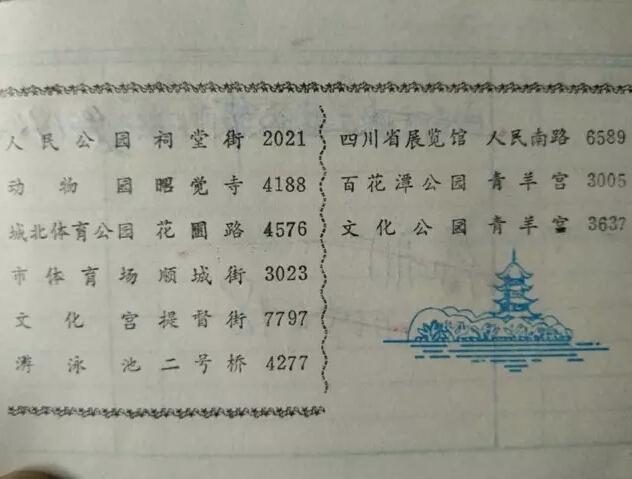 人民公园 祠堂街 2021
动物园 昭觉寺 4188
城北体育公园 花圃路 4576
市体育场 顺城街 3023
文化宫 提督街 7797
游泳池 二号桥 4277
四川省展览馆 人民南路 6589
百花潭公园 青羊宫 3005
文化公园 青羊宫 3637